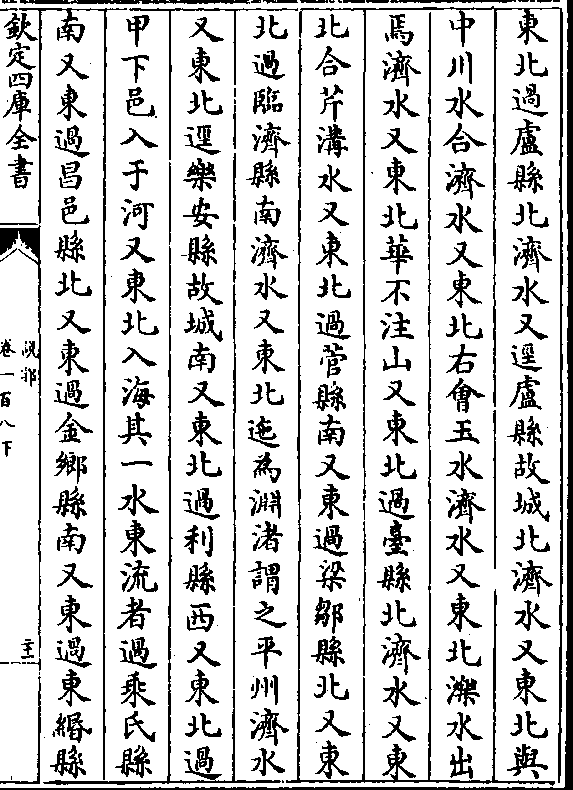 東北過盧縣北濟水又逕盧縣故城北濟水又東北與
中川水合濟水又東北右會玉水濟水又東北濼水出
焉濟水又東北華不注山又東北過臺縣北濟水又東
北合芹溝水又東北過菅縣南又東過梁鄒縣北又東
北過臨濟縣南濟水又東北迆為淵渚謂之平州濟水
又東北逕樂安縣故城南又東北過利縣西又東北過
甲下邑入于河又東北入海其一水東流者過乘氏縣
南又東過昌邑縣北又東過金鄉縣南又東過東緡縣
欽定四庫全書
說郛
卷一百八下